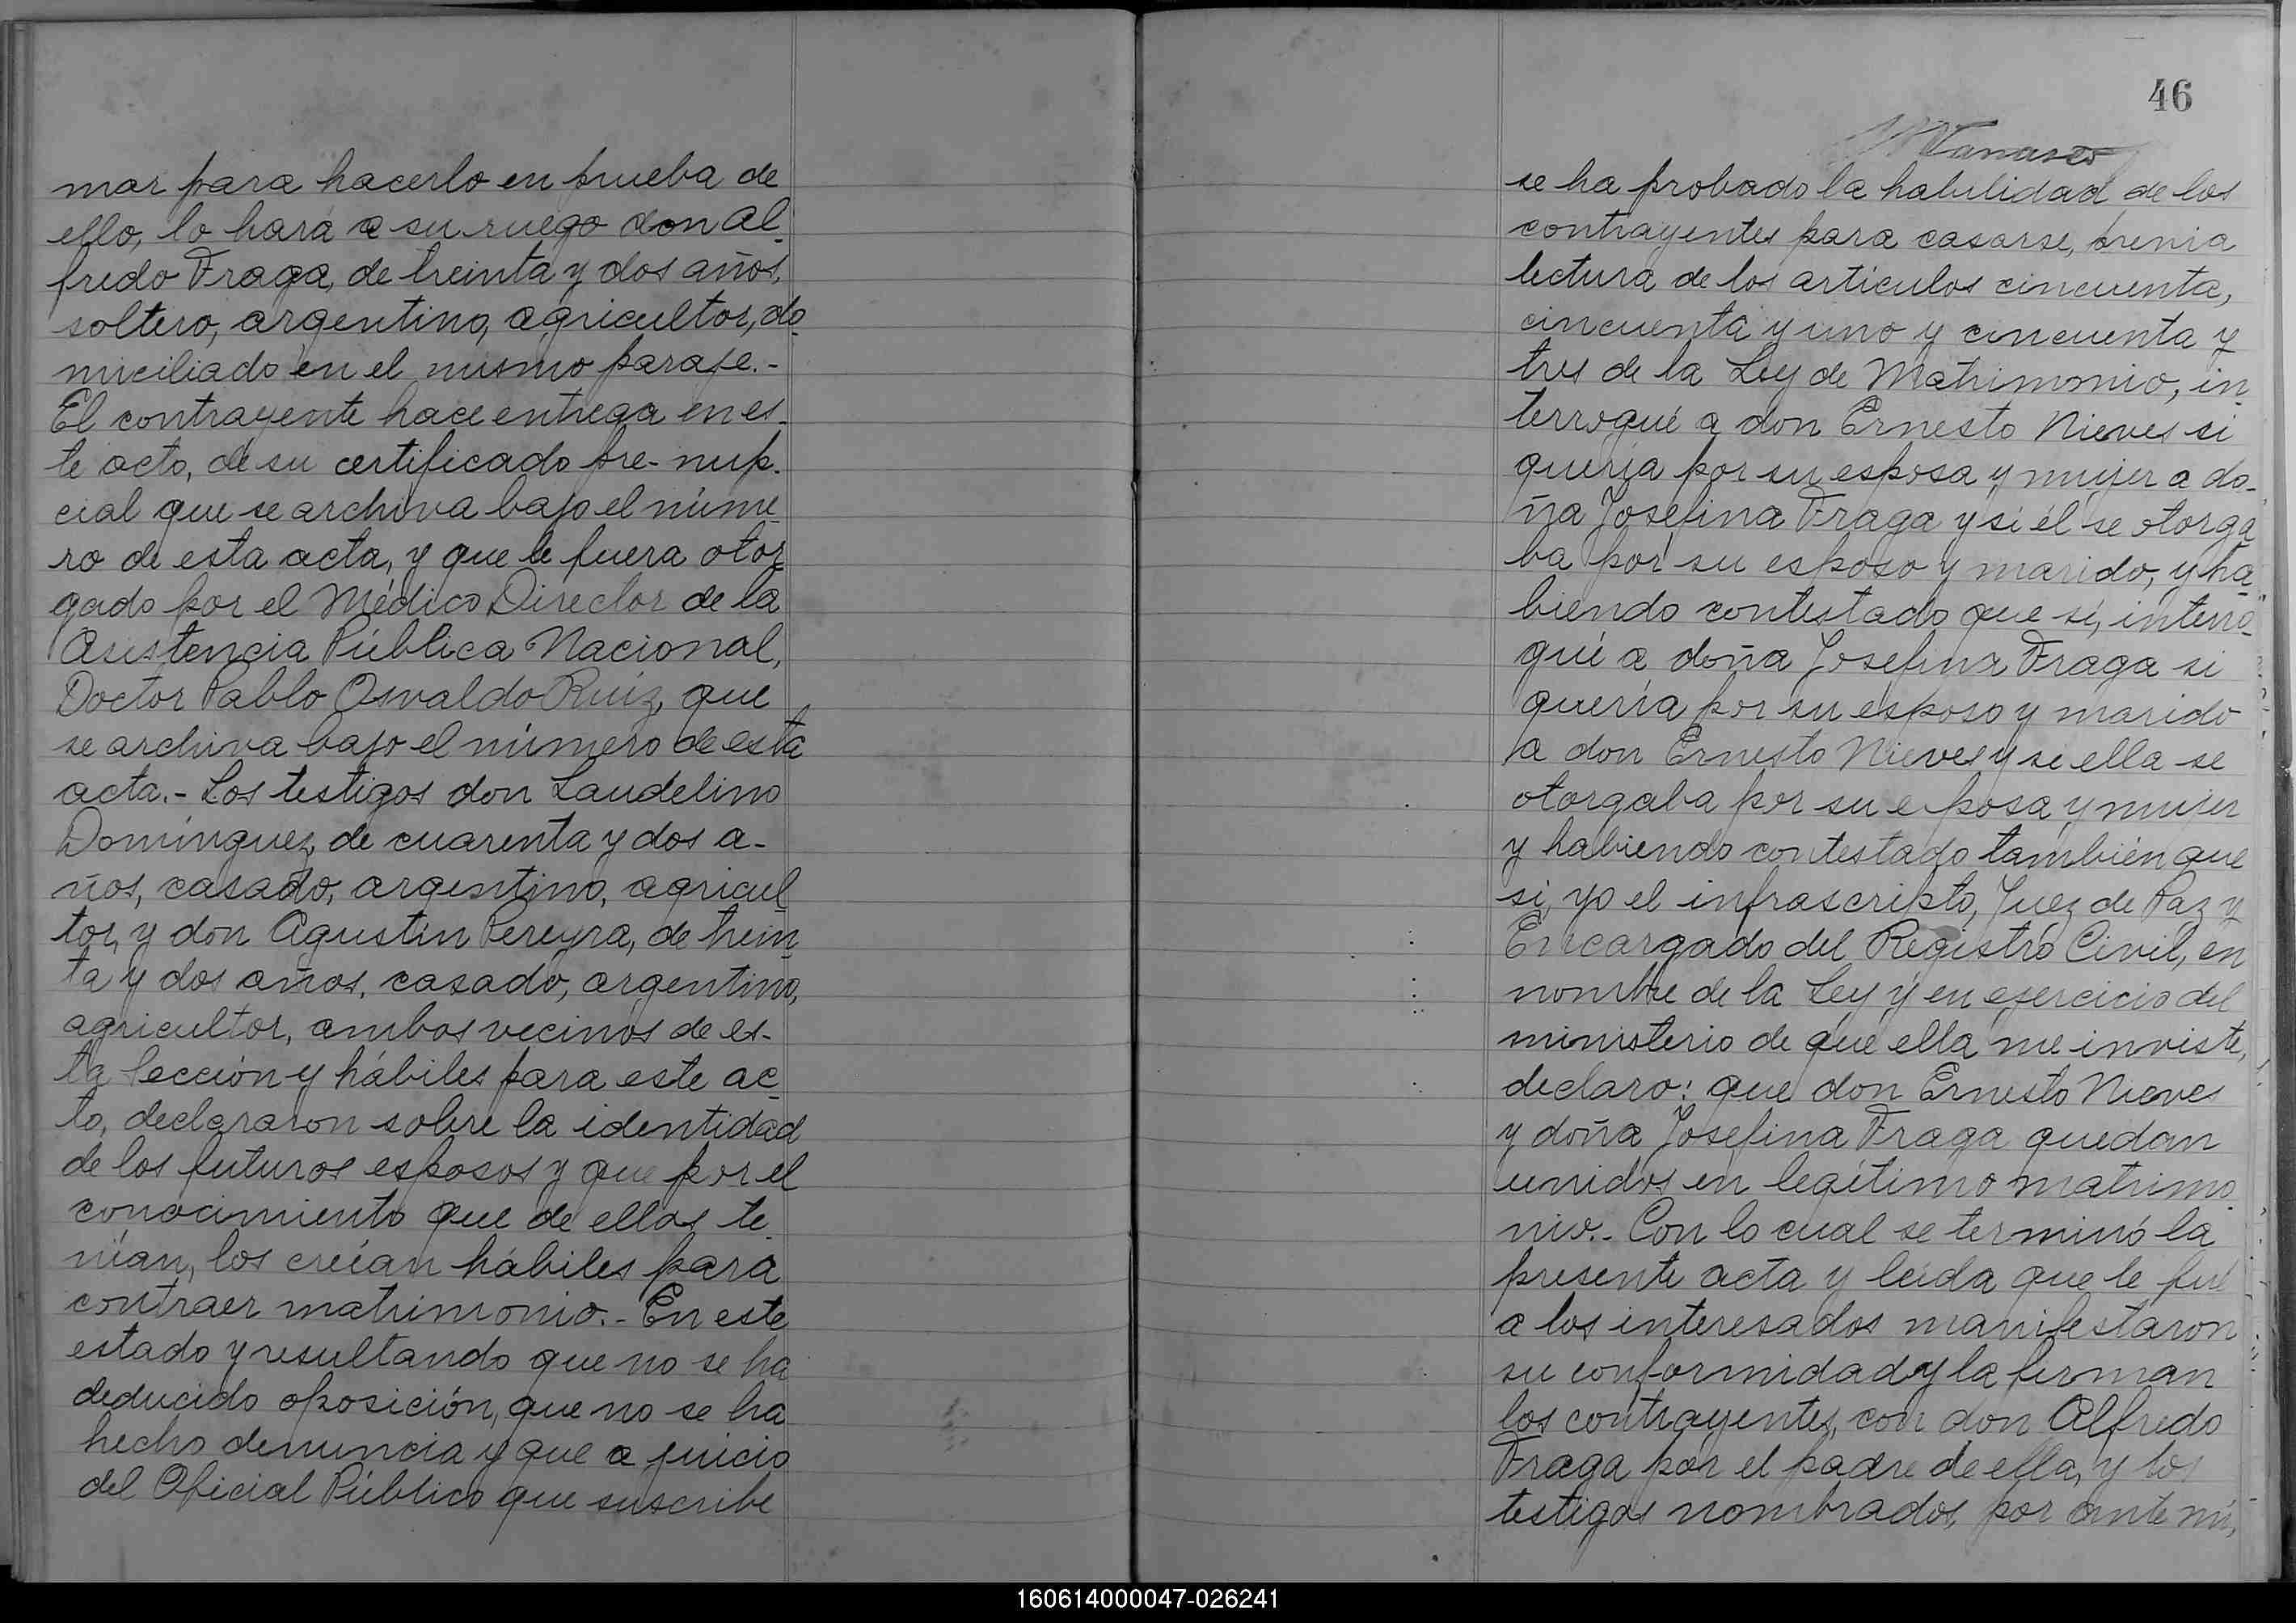 mar para hacerlo en prueba de
ello, lo hará a su ruego don Al-
fredo Fraga, de treinta y dos años,
soltero, argentino, agricultor, do-
miciliado en el mismo paraje.-
El contrayente hace entrega en es-
te acto, de su certificado pre-nup-
cial que se archiva bajo el núme-
ro de esta acta, y que le fuera otor-
gado por el Médico Director de la
Asistencia Pública Nacional,
Doctor Pablo Osvaldo Ruiz, que
se archiva bajo el número de esta
acta.- Los testigos don Laudelino
Domínguez, de cuarenta y dos a-
ños, casado, argentino, agricul-
tor, y don Agustin Pereyra, de trein-
ta y dos años, casado, argentino,
agricultor, ambos vecinos de es-
ta Sección y hábiles para este ac-
to, declararon sobre la identidad
de los futuros esposos y que por el
conocimiento que de ellos te-
nían, los creían hábiles para
contraer matrimonio.- En este
estado y resultando que no se ha
deducido oposición, que no se ha
hecho denuncia y que a juicio
del Oficial Público que suscribe
46
se ha probado la habilidad de los
contrayentes para casarse, previa
lectura de los artículos cincuenta,
cincuenta y uno y cincuenta y
tres de la Ley de Matrimonio, in-
terrogué a don Ernesto Nieves si
quería por su esposa y mujer a do-
ña Josefina Fraga y si él se otorga-
ba por su esposo y marido, y ha-
biendo contestado que sí, interro-
gué a doña Josefina Fraga si
quería por su esposo y marido
a don Ernesto Nieves y si ella se
otorgaba por su esposa y mujer
y habiendo contestado también que
si, yo el infrascripto, Juez de Paz y
Encargado del Registro Civil, en
nombre de la Ley y en ejercicio del
ministerio de que ella me inviste,
declaro: que don Ernesto Nieves
y doña Josefina Fraga quedan
unidos en legítimo matrimo-
nio.- Con lo cual se terminó la
presente acta y leída que le fué
a los interesados manifestaron
su conformidad y la firman
los contrayentes, con don Alfredo
Fraga por el padre de ella, y los
testigos nombrados, por ante mí,
160614000047-026241